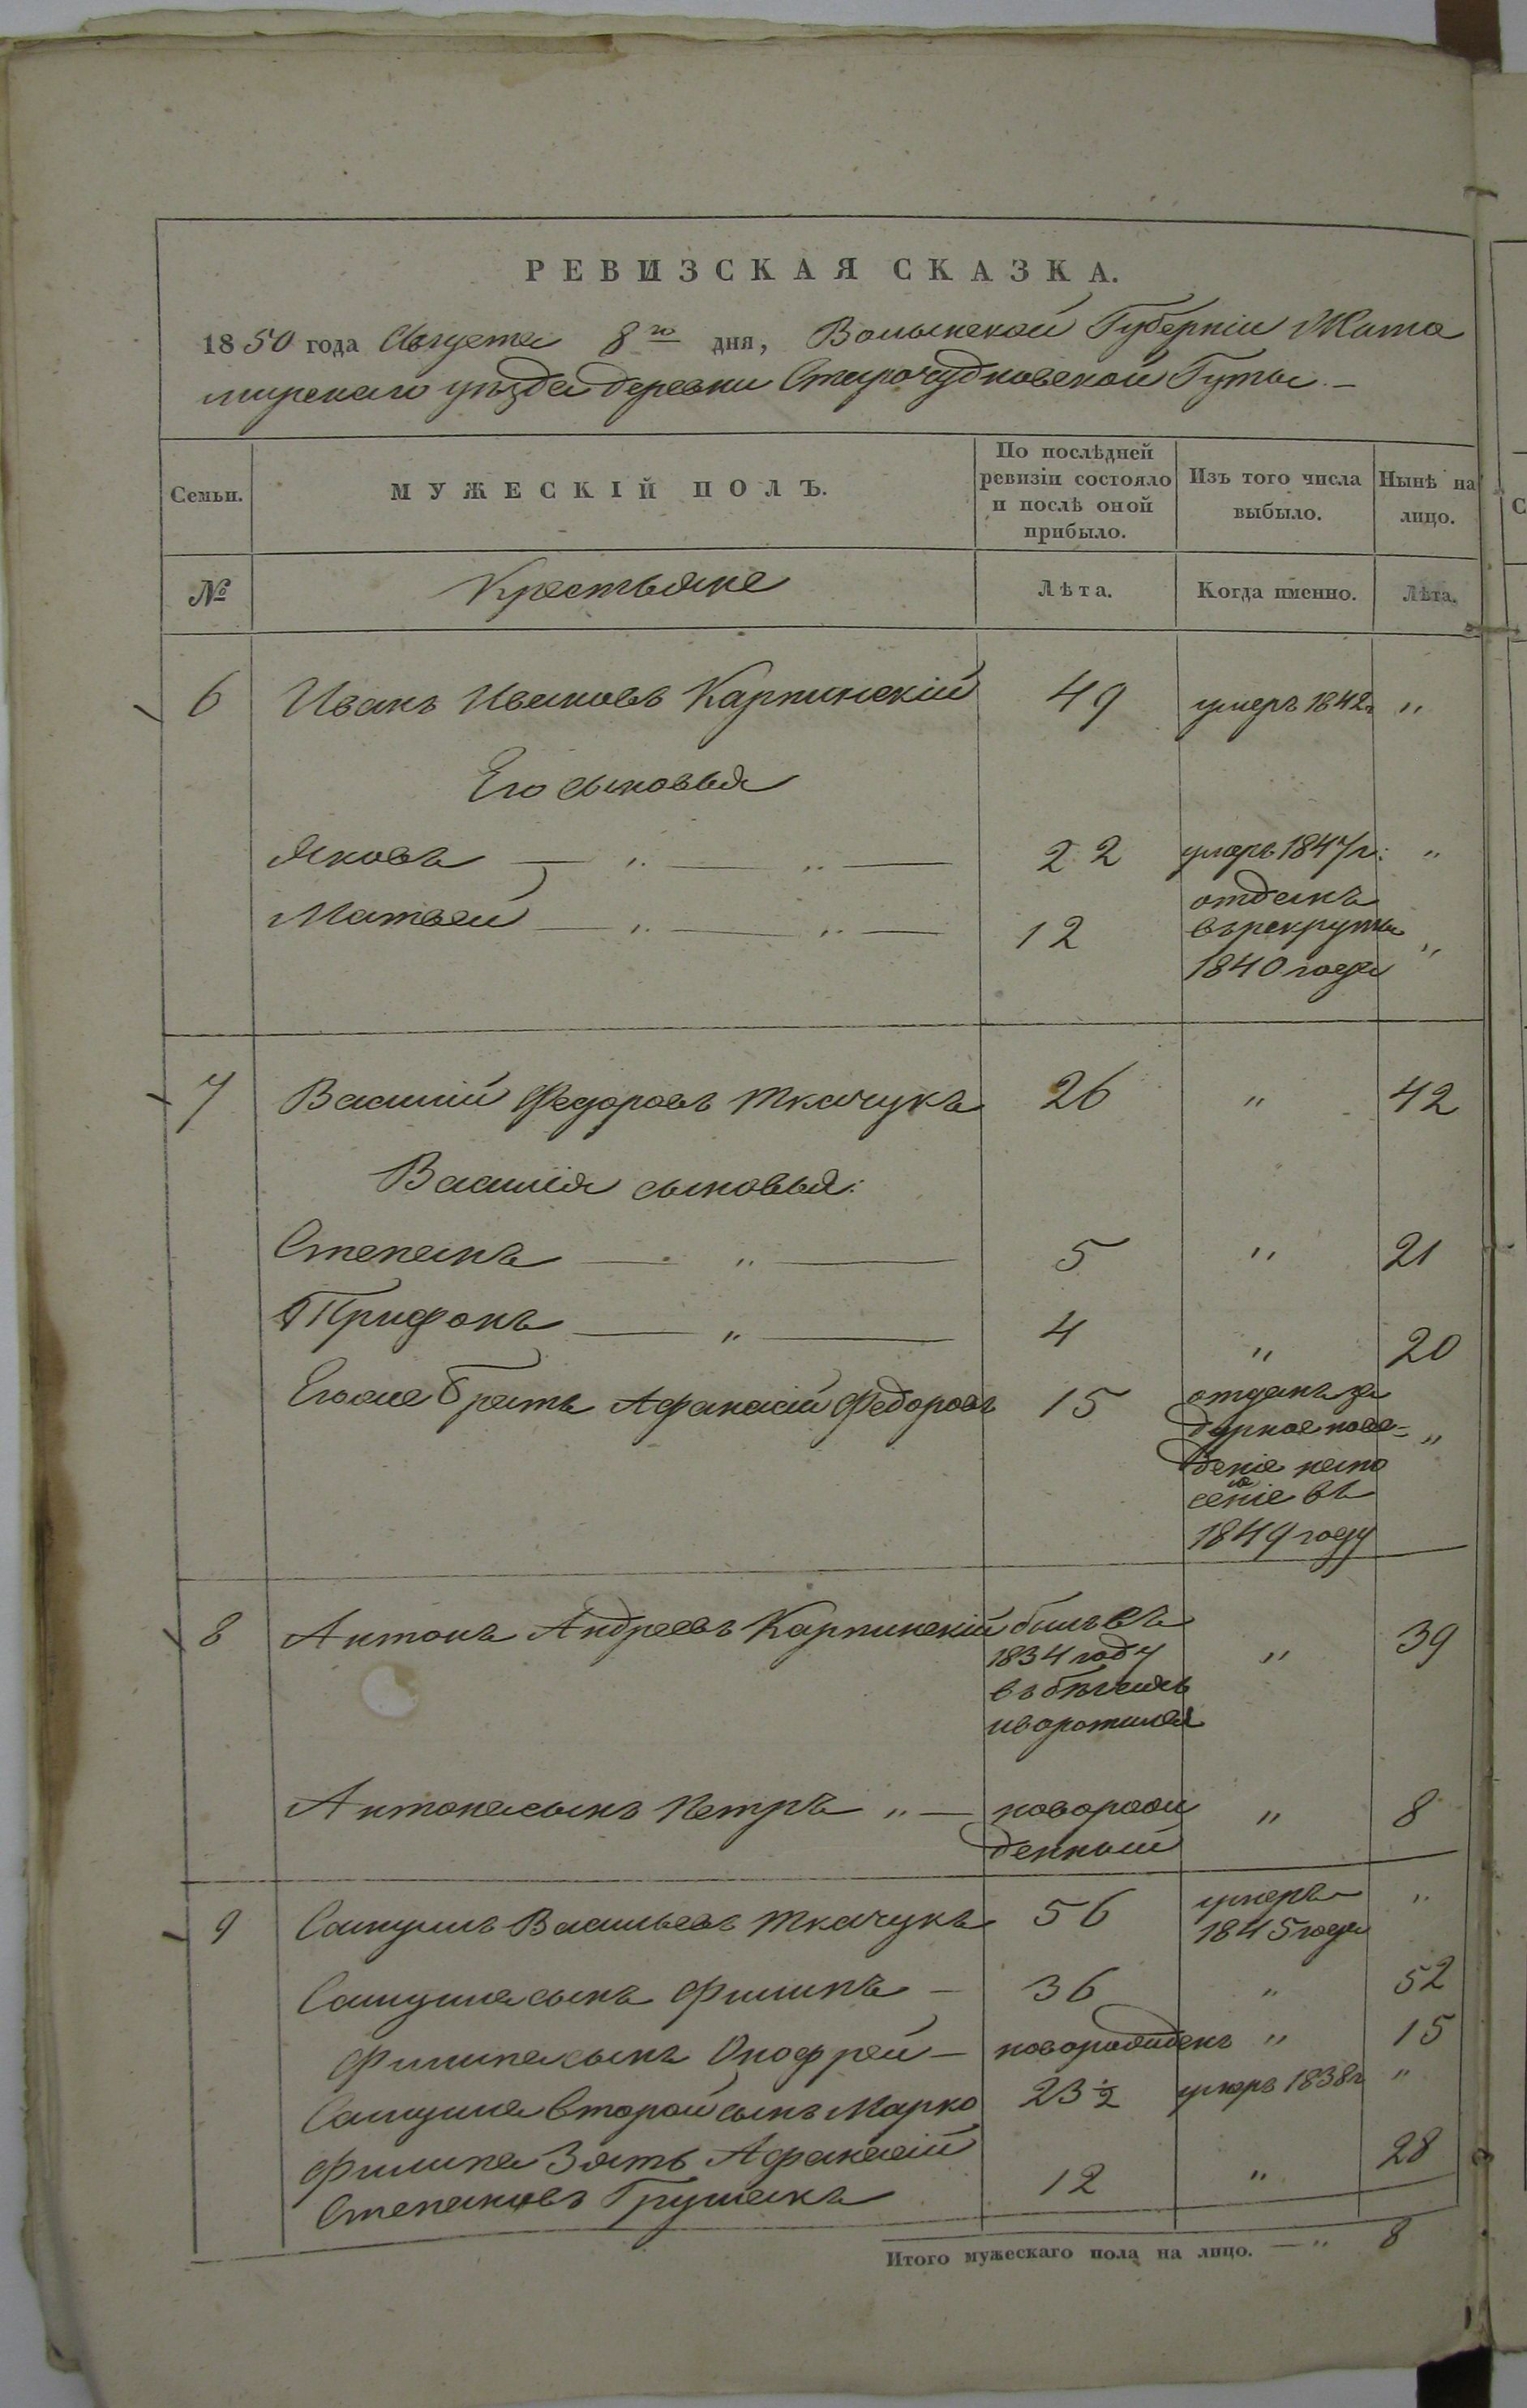 РЕВИЗСКАЯ СКАЗКА.
1850 года Августа 8го дня, Волынской Губерніи Жито
мирскаго уѣзда деревни Старочудновской Гуты. —
Семьи.
МУЖЕСКІЙ ПОЛЪ.
По послѣдней
ревизіи состояло
и послѣ оной
прибыло.
Изъ того числа
выбыло.
Нынѣ на
лицо.
№
Крестьяне
Лѣта.
Когда именно.
Лѣта.
6 Иванъ Ивановъ Карпинскій 49 умеръ 1842г "
Его сыновья
Яковъ — " — " — 22 умеръ 1847г: "
Матвей — " — " — 12 отданъ
въ рекруты "
1840 года
7 Василій Федоровъ Ткачукъ 26 " 42
Василія сыновья:
Степанъ — " — 5 " 21
Трифонъ — " — 4 " 20
Его же братъ Афанасій Федоровъ 15 отданъ за
дурное пове= "
деніе на по
селеніе въ
1849 году
8 Антонъ Андреевъ Карпинскій былъ въ
1834 году " 39
въ бѣгахъ
и воротился
Антона сынъ Петръ " — новорож " 8
денный
9 Самуилъ Васильевъ Ткачукъ 56 умеръ "
1845 года
Самуила сынъ Филипъ — 36 " 52
Филипа сынъ Онофрей — новорожденъ " 15
Самуила второй сынъ Марко 23½ умеръ 1838г "
Филипа Зять Афанасій
Степановъ Грушакъ 12 " 28
Итого мужескаго пола на лицо. — " 8